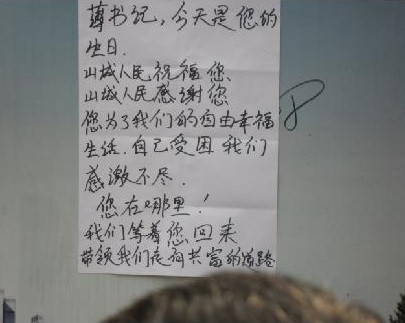 薄书记，今天是您的
生日.
山城人民祝福您、
山城人民感谢您
您为了我们的自由幸福
生活.自己受困 我们
感激不尽.
您在哪里！
我们等着您回来
带领我们走向共富的道路